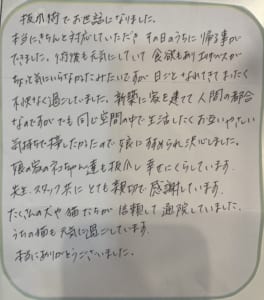 抜爪術でお世話になりました。
本当にきちんと対応していただき その日のうちに帰る事が
できました。術後も元気にしていて 食欲もあり
なって気にいらなかったみたいですが 日ごとなれてきてまったく
不快なく過ごしていました。新築に家を建てて 人間の都合
なのですがでも 同じ空間の中で生活したく お互いやさしい
気持ちで接したかったので 娘に 決心しました。
娘の家のネコちゃん達も抜爪し 幸せにくらしています。
先生、スタッフ共に とても親切で感謝しています。
たくさんの犬や猫たちが 信頼して 通院していました。
うちの猫も元気に過ごしています。
本当にありがとうございました。